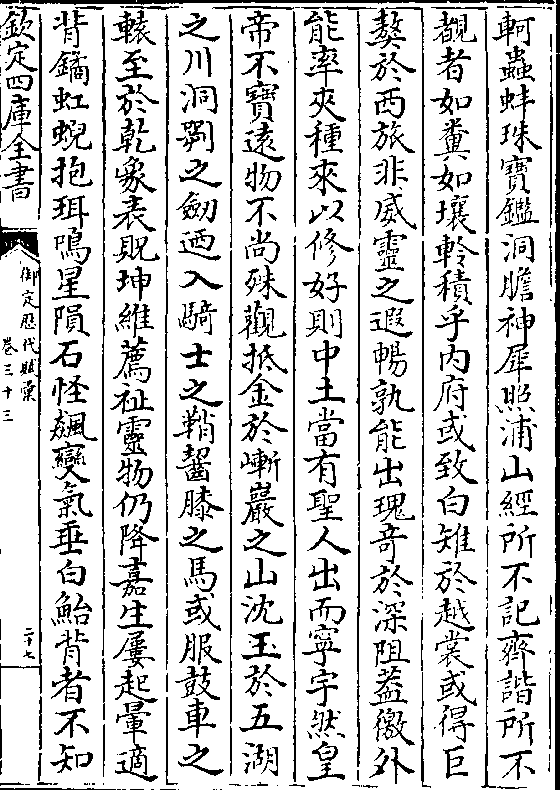 軻蟲蚌珠寶鑑洞膽神犀照浦山經所不記齊諧所不
覩者如糞如壤輪積乎内府或致白雉於越裳或得巨
獒於西旅非威靈之遐暢孰能出瑰竒於深阻葢徼外
能率夾種來以修好則中土當有聖人出而寧宇然皇
帝不寶遠物不尚殊觀抵金於嶄巖之山沈玉於五湖
之川洞剟之劒廼入騎士之鞘齧膝之馬或服鼓車之
轅至於乾象表貺坤維薦祉靈物仍降嘉生屢起暈適
背鐍虹蜺抱珥鳴星隕石怪飊變氣垂白鮐背者不知
欽定四庫全書
御定歴代賦彚
卷三十三
二十七